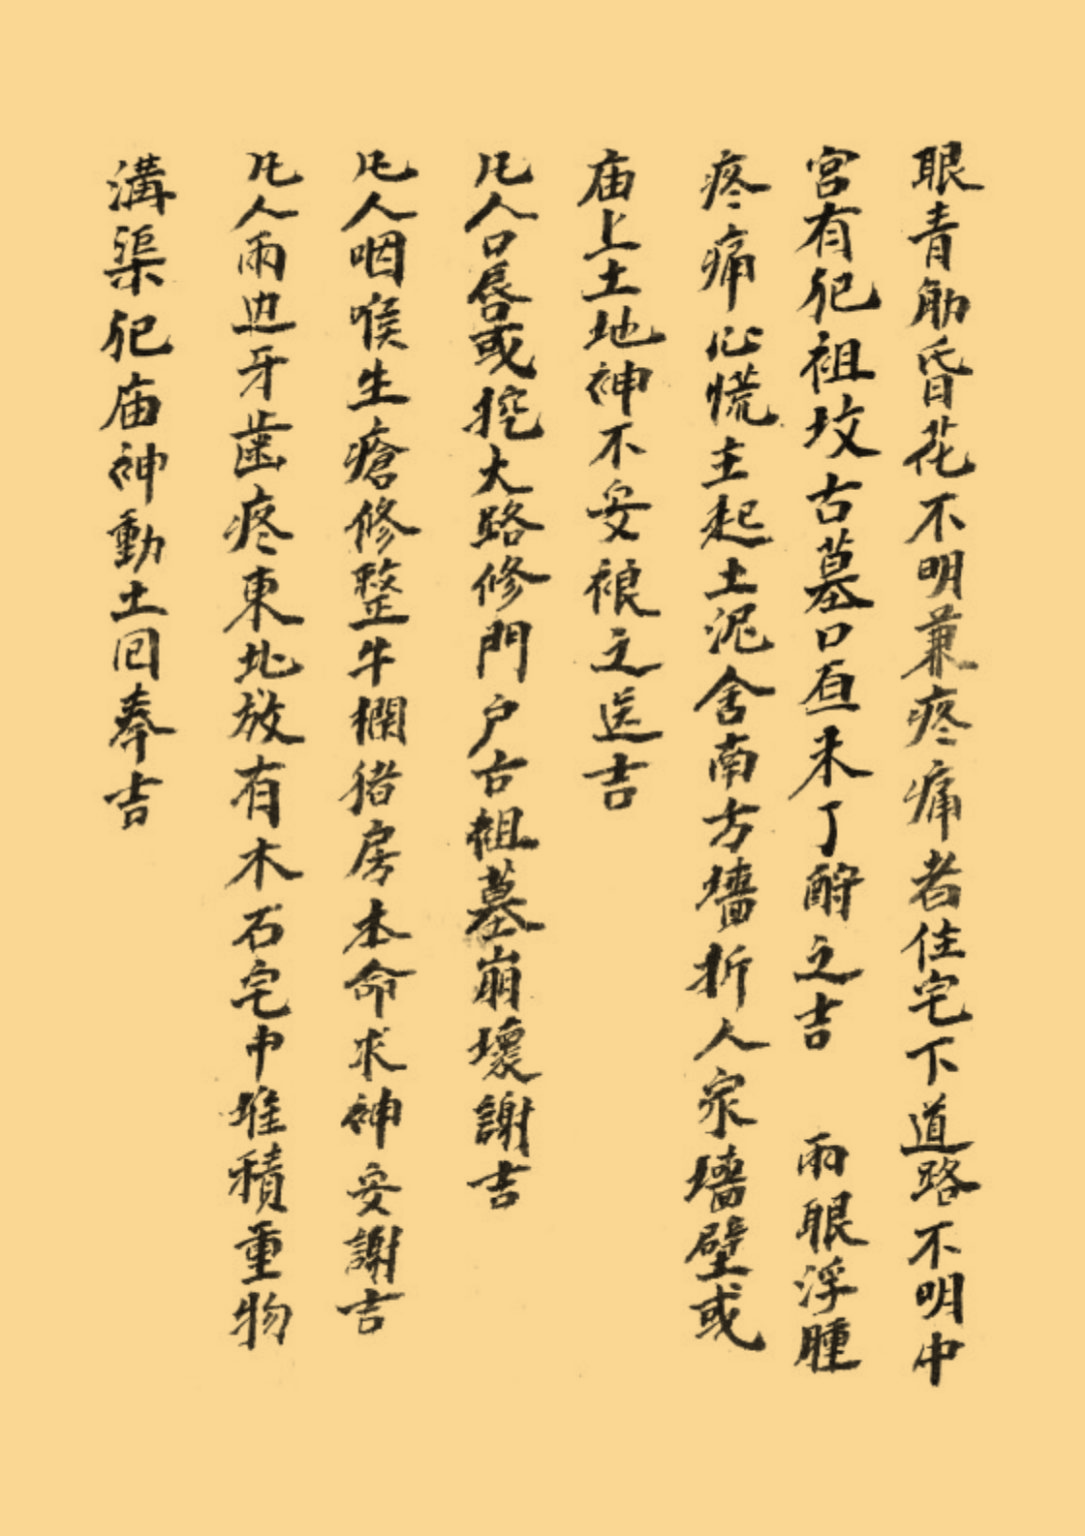 眼青觔昏花不明兼疼痛者住宅下道路不明中
宮有犯祖坟古墓口愿未了酧之吉 兩眼浮腫
疼痛心慌主起土泥舍南方墻折人家墻壁或
庙上土地神不安禳之送吉
凡人口唇或挖大路修門户古祖墓崩壞謝吉
凡人咽喉生瘡修整牛欄猪房本命求神安謝吉
凡人兩边牙齒疼東北放有木石宅中堆積重物
溝渠犯庙神動土囘奉吉